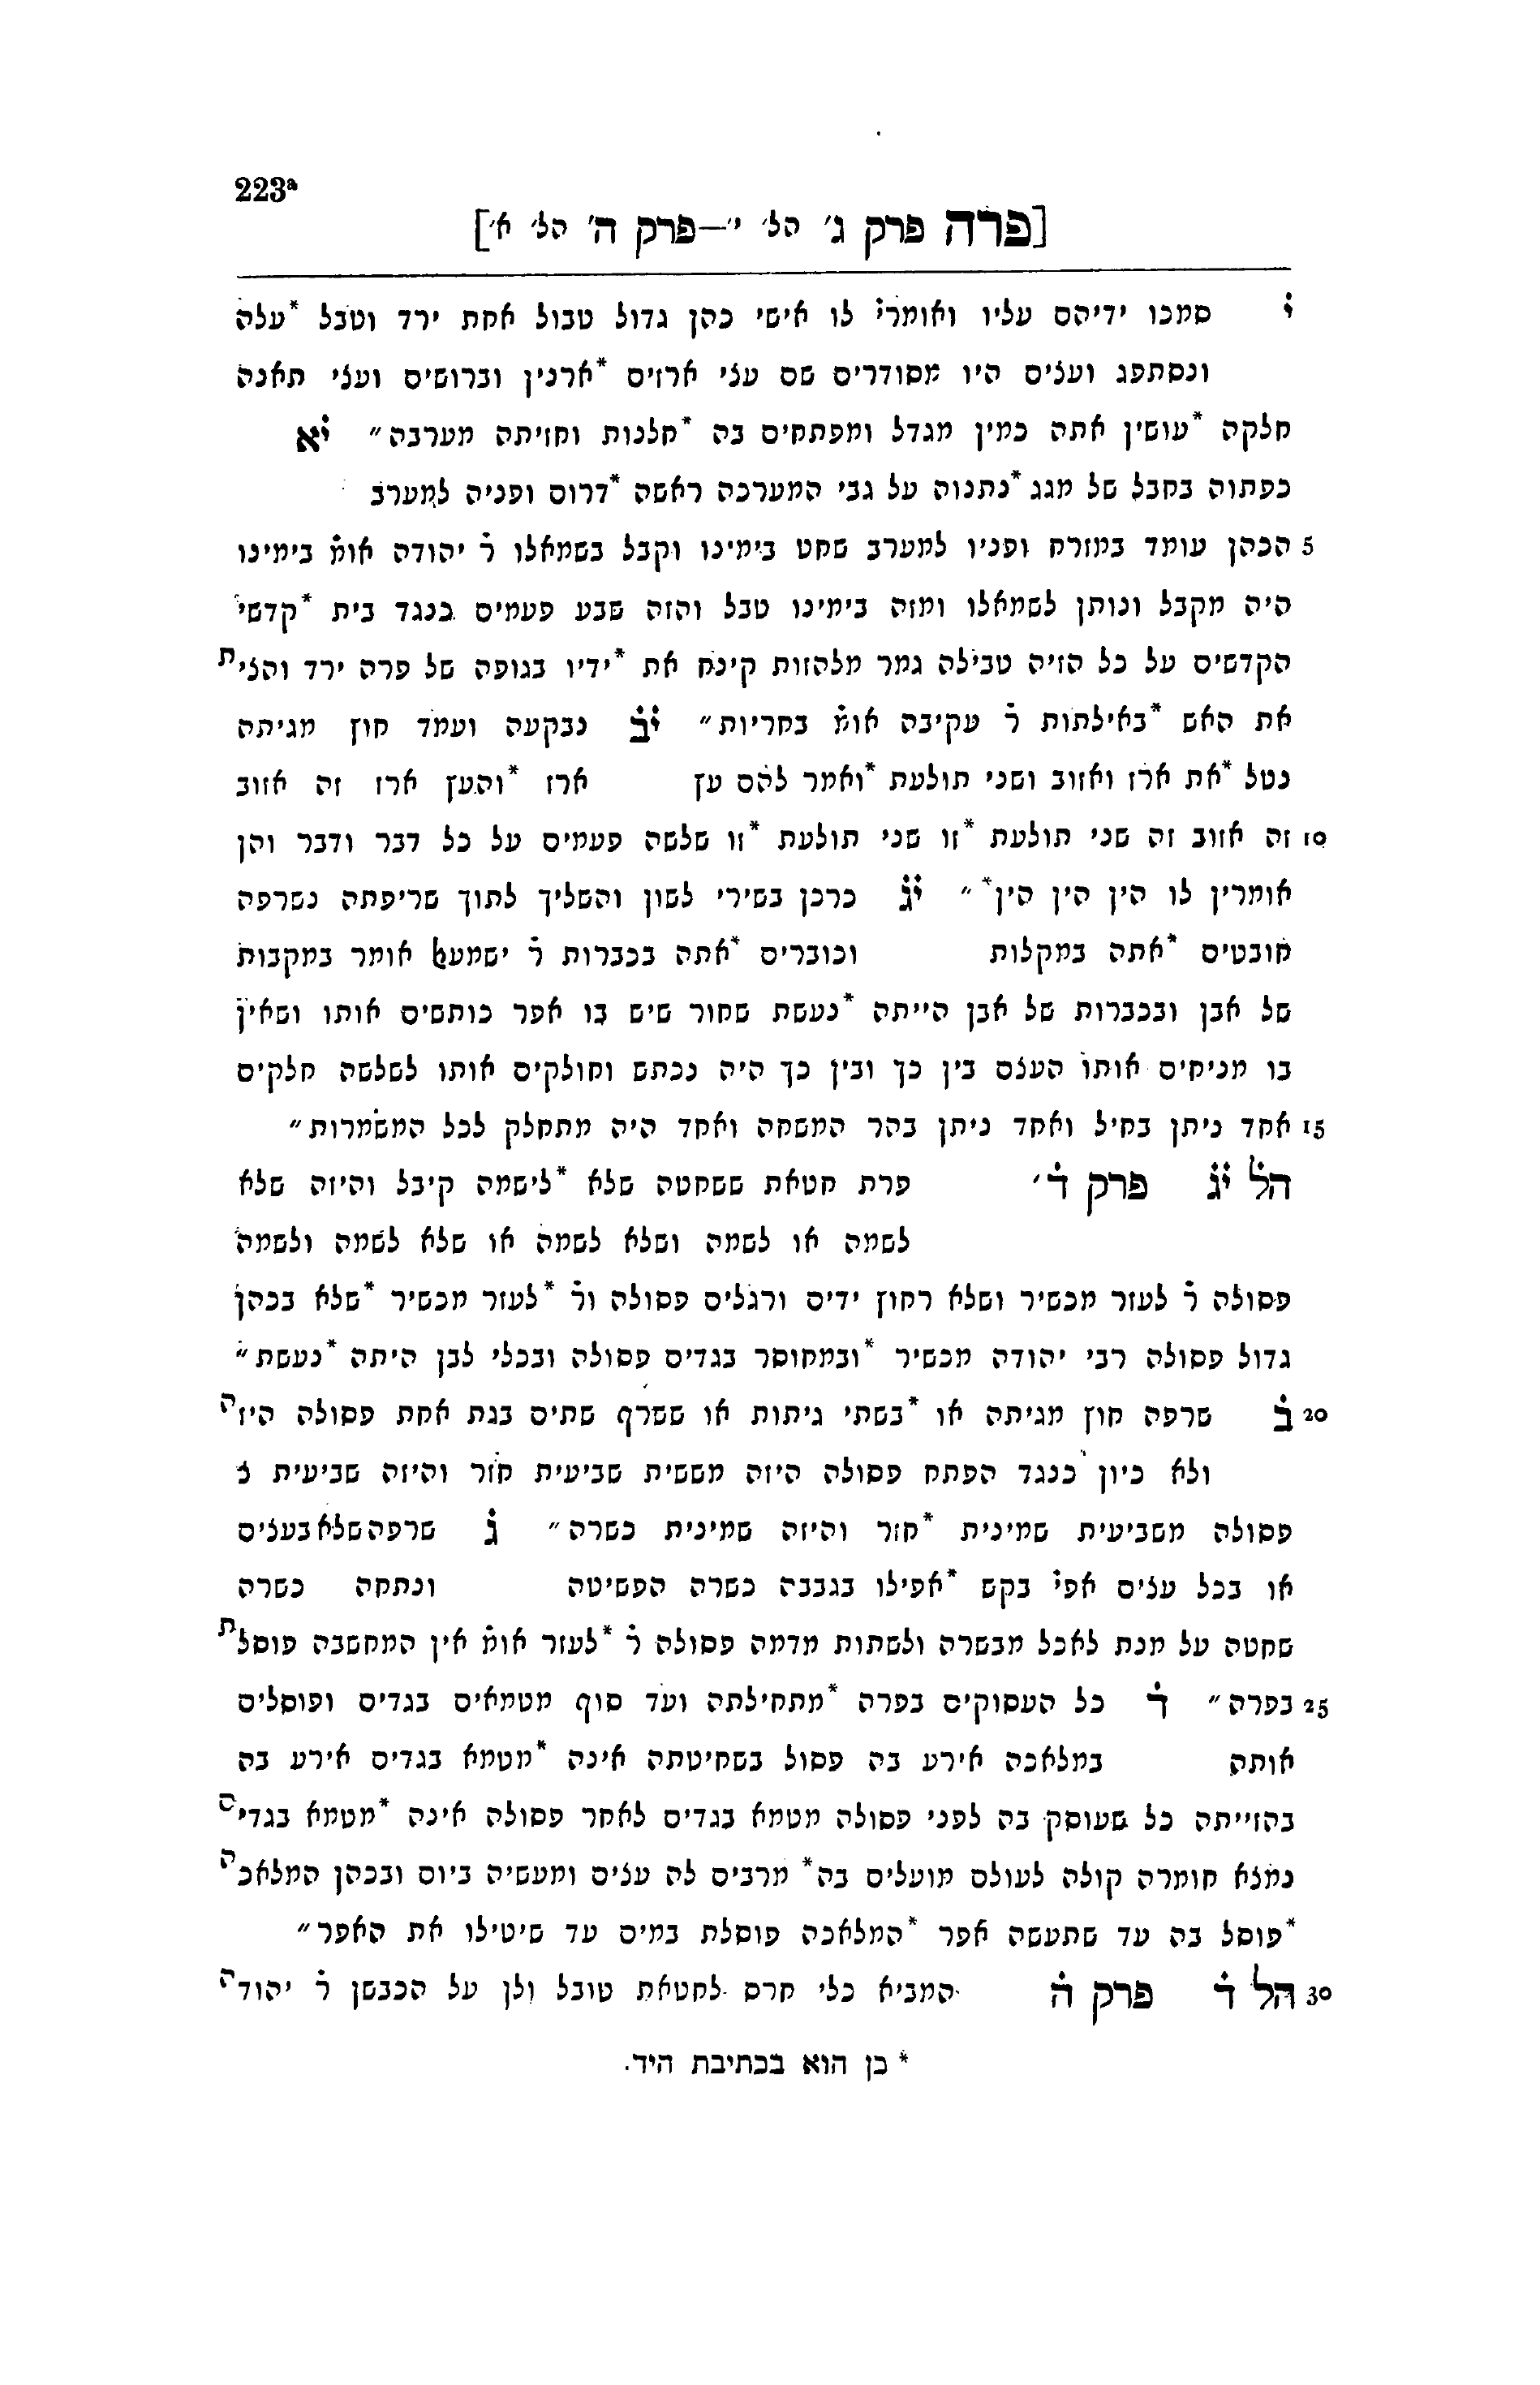 223ª
[פרה פרק ג׳ הל׳ י׳–פרק ה׳ הל׳ א׳]
י סמכו ידיהם עליו ואומרי לו אישי כהן גדול טבול אחת ירד וטבל *עלה
ונסתפג ועצים היו מסודרים שם עצי ארזים *ארנין וברושים ועצי תאנה
חלקה *עושין אתה כמין מגדל ומפתחים בה *חלנות וחזיתה מערבה״ יא
כפתוה בחבל של מגג *נתנוה על גבי המערכה ראשה *דרום ופניה למערב
5 הכהן עומד במזרח ופניו למערב שחט בימינו וקבל בשמאלו ר יהודה אומ בימינו
היה מקבל ונותן לשמאלו ומזה בימינו טבל והזה שבע פעמים כנגד בית *קדשי
הקדשים על כל הזיה טבילה גמר מלהזות קינח את *ידיו בגופה של פרה ירד והצית
את האש *באילתות ר עקיבה אומ בחריות״ יב נבקעה ועמד חוץ מגיתה
נטל *את ארז ואזוב ושני תולעת *ואמר להם עץ ארז *והעץ ארז זה אזוב
10 זה אזוב זה שני תולעת *זו שני תולעת *זו שלשה פעמים על כל דבר ודבר והן
אומרין לו הין הין הין*״ יג כרכן בשירי לשון והשליך לתוך שריפתה נשרפה
חובטים *אתה במקלות וכוברים *אתה בכברות ר ישמעל אומר במקבות
של אבן ובכברות של אבן הייתה *נעשת שחור שיש בו אפר כותשים אותו ושאין
בו מניחים אותו העצם בין כך ובין כך היה נכתש וחולקים אותו לשלשה חלקים
15 אחד ניתן בחיל ואחד ניתן בהר המשחה ואחד היה מתחלק לכל המשמרות״
הל יג פרק ד׳ פרת חטאת ששחטה שלא *לישמה קיבל והיזה שלא
לשמה או לשמה ושלא לשמה או שלא לשמה ולשמה
פסולה ר לעזר מכשיר ושלא רחוץ ידים ורגלים פסולה ור *לעזר מכשיר *שלא בכהן
גדול פסולה רבי יהודה מכשיר *ובמחוסר בגדים פסולה ובכלי לבן היתה *נעשת״
20 ב שרפה חוץ מגיתה או *בשתי גיתות או ששרף שתים בגת אחת פסולה היזה
ולא כיון כנגד הפתח פסולה היזה מששית שביעית חזר והיזה שביעית
פסולה משביעית שמינית *חזר והיזה שמינית כשרה״ ג שרפהשלאבעצים
או בכל עצים אפי בקש *אפילו בגבבה כשרה הפשיטה ונתחה כשרה
שחטה על מנת לאכל מבשרה ולשתות מדמה פסולה ר *לעזר אומ אין המחשבה פוסלת
25 בפרה״ ד כל העסוקים בפרה *מתחילתה ועד סוף מטמאים בגדים ופוסלים
אותה במלאכה אירע בה פסול בשחיטתה אינה *מטמא בגדים אירע בה
בהזייתה כל שעוסק בה לפני פסולה מטמא בגדים לאחר פסולה אינה *מטמא בגדים
נמצא חומרה קולה לעולם מועלים בה* מרבים לה עצים ומעשיה ביום ובכהן המלאכה
*פוסל בה עד שתעשה אפר *המלאכה פוסלת במים עד שיטילו את האפר״
30 הל ד פרק ה המביא כלי חרס לחטאת טובל ולן על הכבשן ר יהודה
* כן הוא בכתיבת היד.